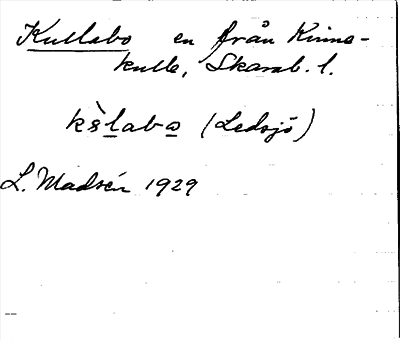 Kullabo en från Kinne-
kulle, Skarab. l.
(Ledsjö)
L. Madsén 1929